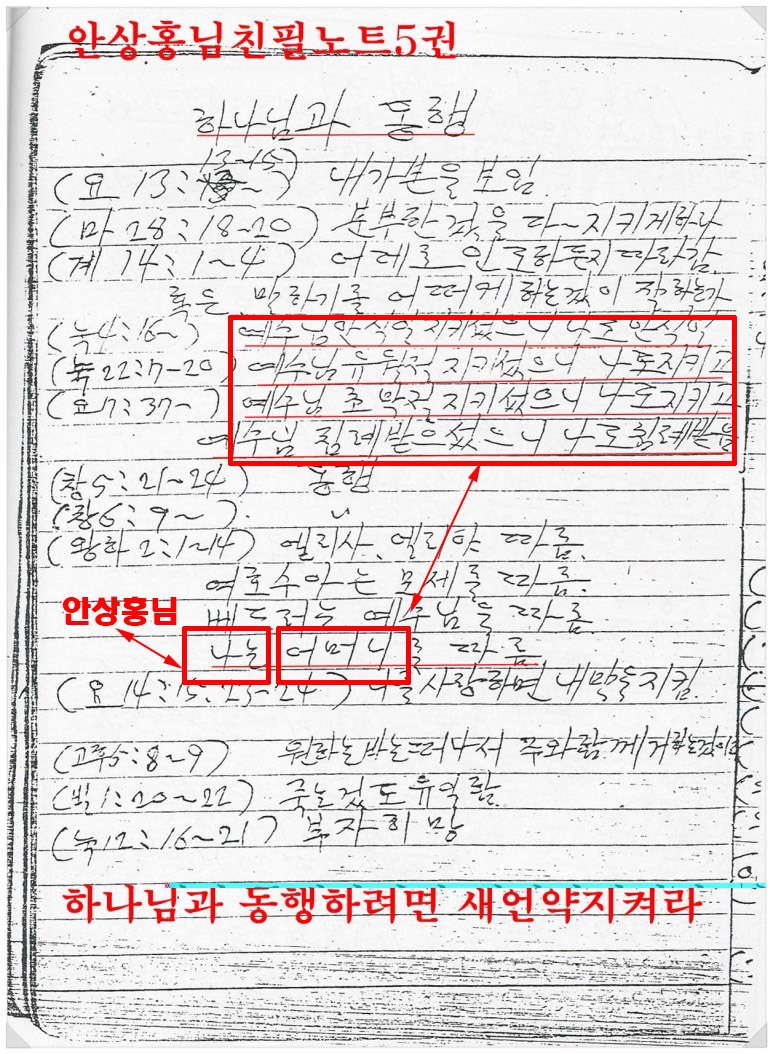 안상홍님친필노트5권
하나님과 동행
13~15
(요 13: ~ ) 내가본을보임
(마 28:18~20) 분부한것을 다~지키게하라
(계 14:1~4) 어데로 인도하든지따라감.
혹은 말하기를 어떠케하는것이 잘하는가
(눅4:16~) 예수님안식일지키셨으니 나도안식일
(눅22:7~20) 예수님유월절 지키셨으니 나도지키고
(요7:37~ ) 예수님 초막절지키셨으니 나도지키고
예수님 침례받으셨으니 나도침례받음
(창5:21~24) 동행
(창6:9~ ) 〃
(왕하2:1~14) 엘리사, 엘리야 따름.
여호수아는 모세를따름.
안상홍님
베드로는 예수님을따름.
나는 어머니를 따름
(요 14:15, 23~24) 나를사랑하면 내말을지킴.
(고후5:8~9) 원하는바는떠나서 주와함께거하는것이라
(빌1:20~22) 죽는것도유익함.
(눅12:16~21) 부자희망
하나님과 동행하려면 새언약지켜라